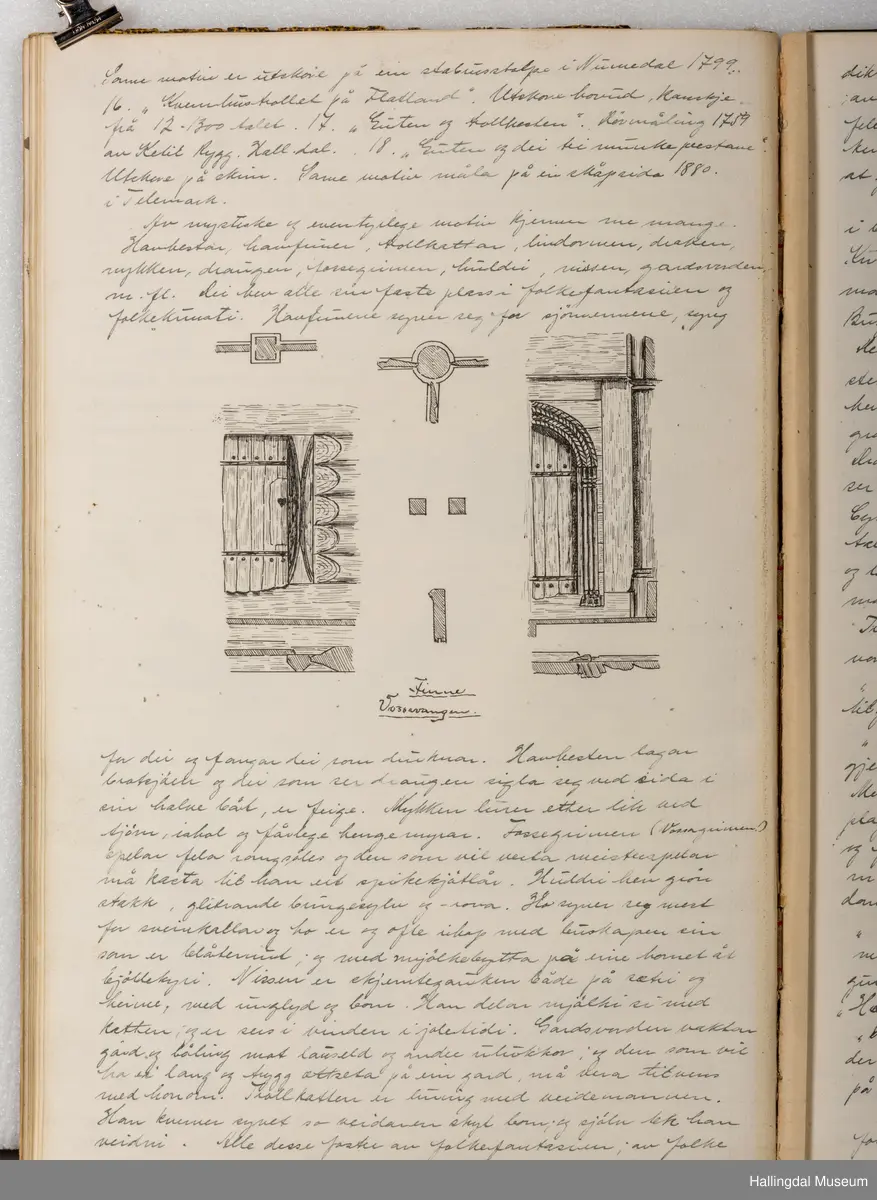 Same motiv er utskore på ein stabursstolpe i Numedal 1799.
16. "Kvernhustrollet på Flatland". Utskore hovud, kanskje
frå 12-1300 talet. 17. "Guten og trollkesten". Rosemåling 1757
av Ketil Rygg, Hall.dal. 18. "Guten og dei tri munkeprestane".
Utskore på skrin. Same motiv måla på ein skåpsida 1880.
i Telemark.
Av mystiske og eventyrlege motiv kjenner me mange.
Havhestar, havfruer, trollkattar, lindormen, draken,
nykken, draugen, fossegrimen, huldri, nissen, gardvorden,
m. fl. Dei hev alle sin faste plass i folkefantasien og
folkekunsti. Havfruene syner seg for sjömennene, syng
Finne
Vossevangen.
for dei og fangar dei som druknar. Havhesten lagar
brotsjöen og dei som ser draugen sigla seg ved sida i
sin halve båt, er feige. Nykken lurer etter lik ved
tjörn, i hol og fårlege hengemyrar. Fossegrimen (Vossagrimen!)
spelar fela rangsöles og den som vil verta meisterspelar
må kasta til han eit spikekjötlår. Huldri hev grön
stakk, glitrande bringesylv og - rova. Ho syner seg mest
for sveinkallar og ho er og ofte ihop med buskapen sin
som er blåterind; og med mjölkebytta på eine hornet åt
bjöllekyri. Nissen er skjemtegauken både på sætri og
heime, med unglyd og born. Han delar mjölki si med
katten; og er sers i vinden i joletidi. Gardsvorden vaktar
gard og böling mot lauseld og andre ulukkor; og den som vil
ha ei lang og trygg ættseta på ein gard, må vera tilvens
med honom. Trollkatten er buing med veidemannen.
Han kverver synet so veidaren skyt bom; og sjölv tek han
veidni. Alle desse fostre av folkefantasien; av folke
Hallingdal Museum